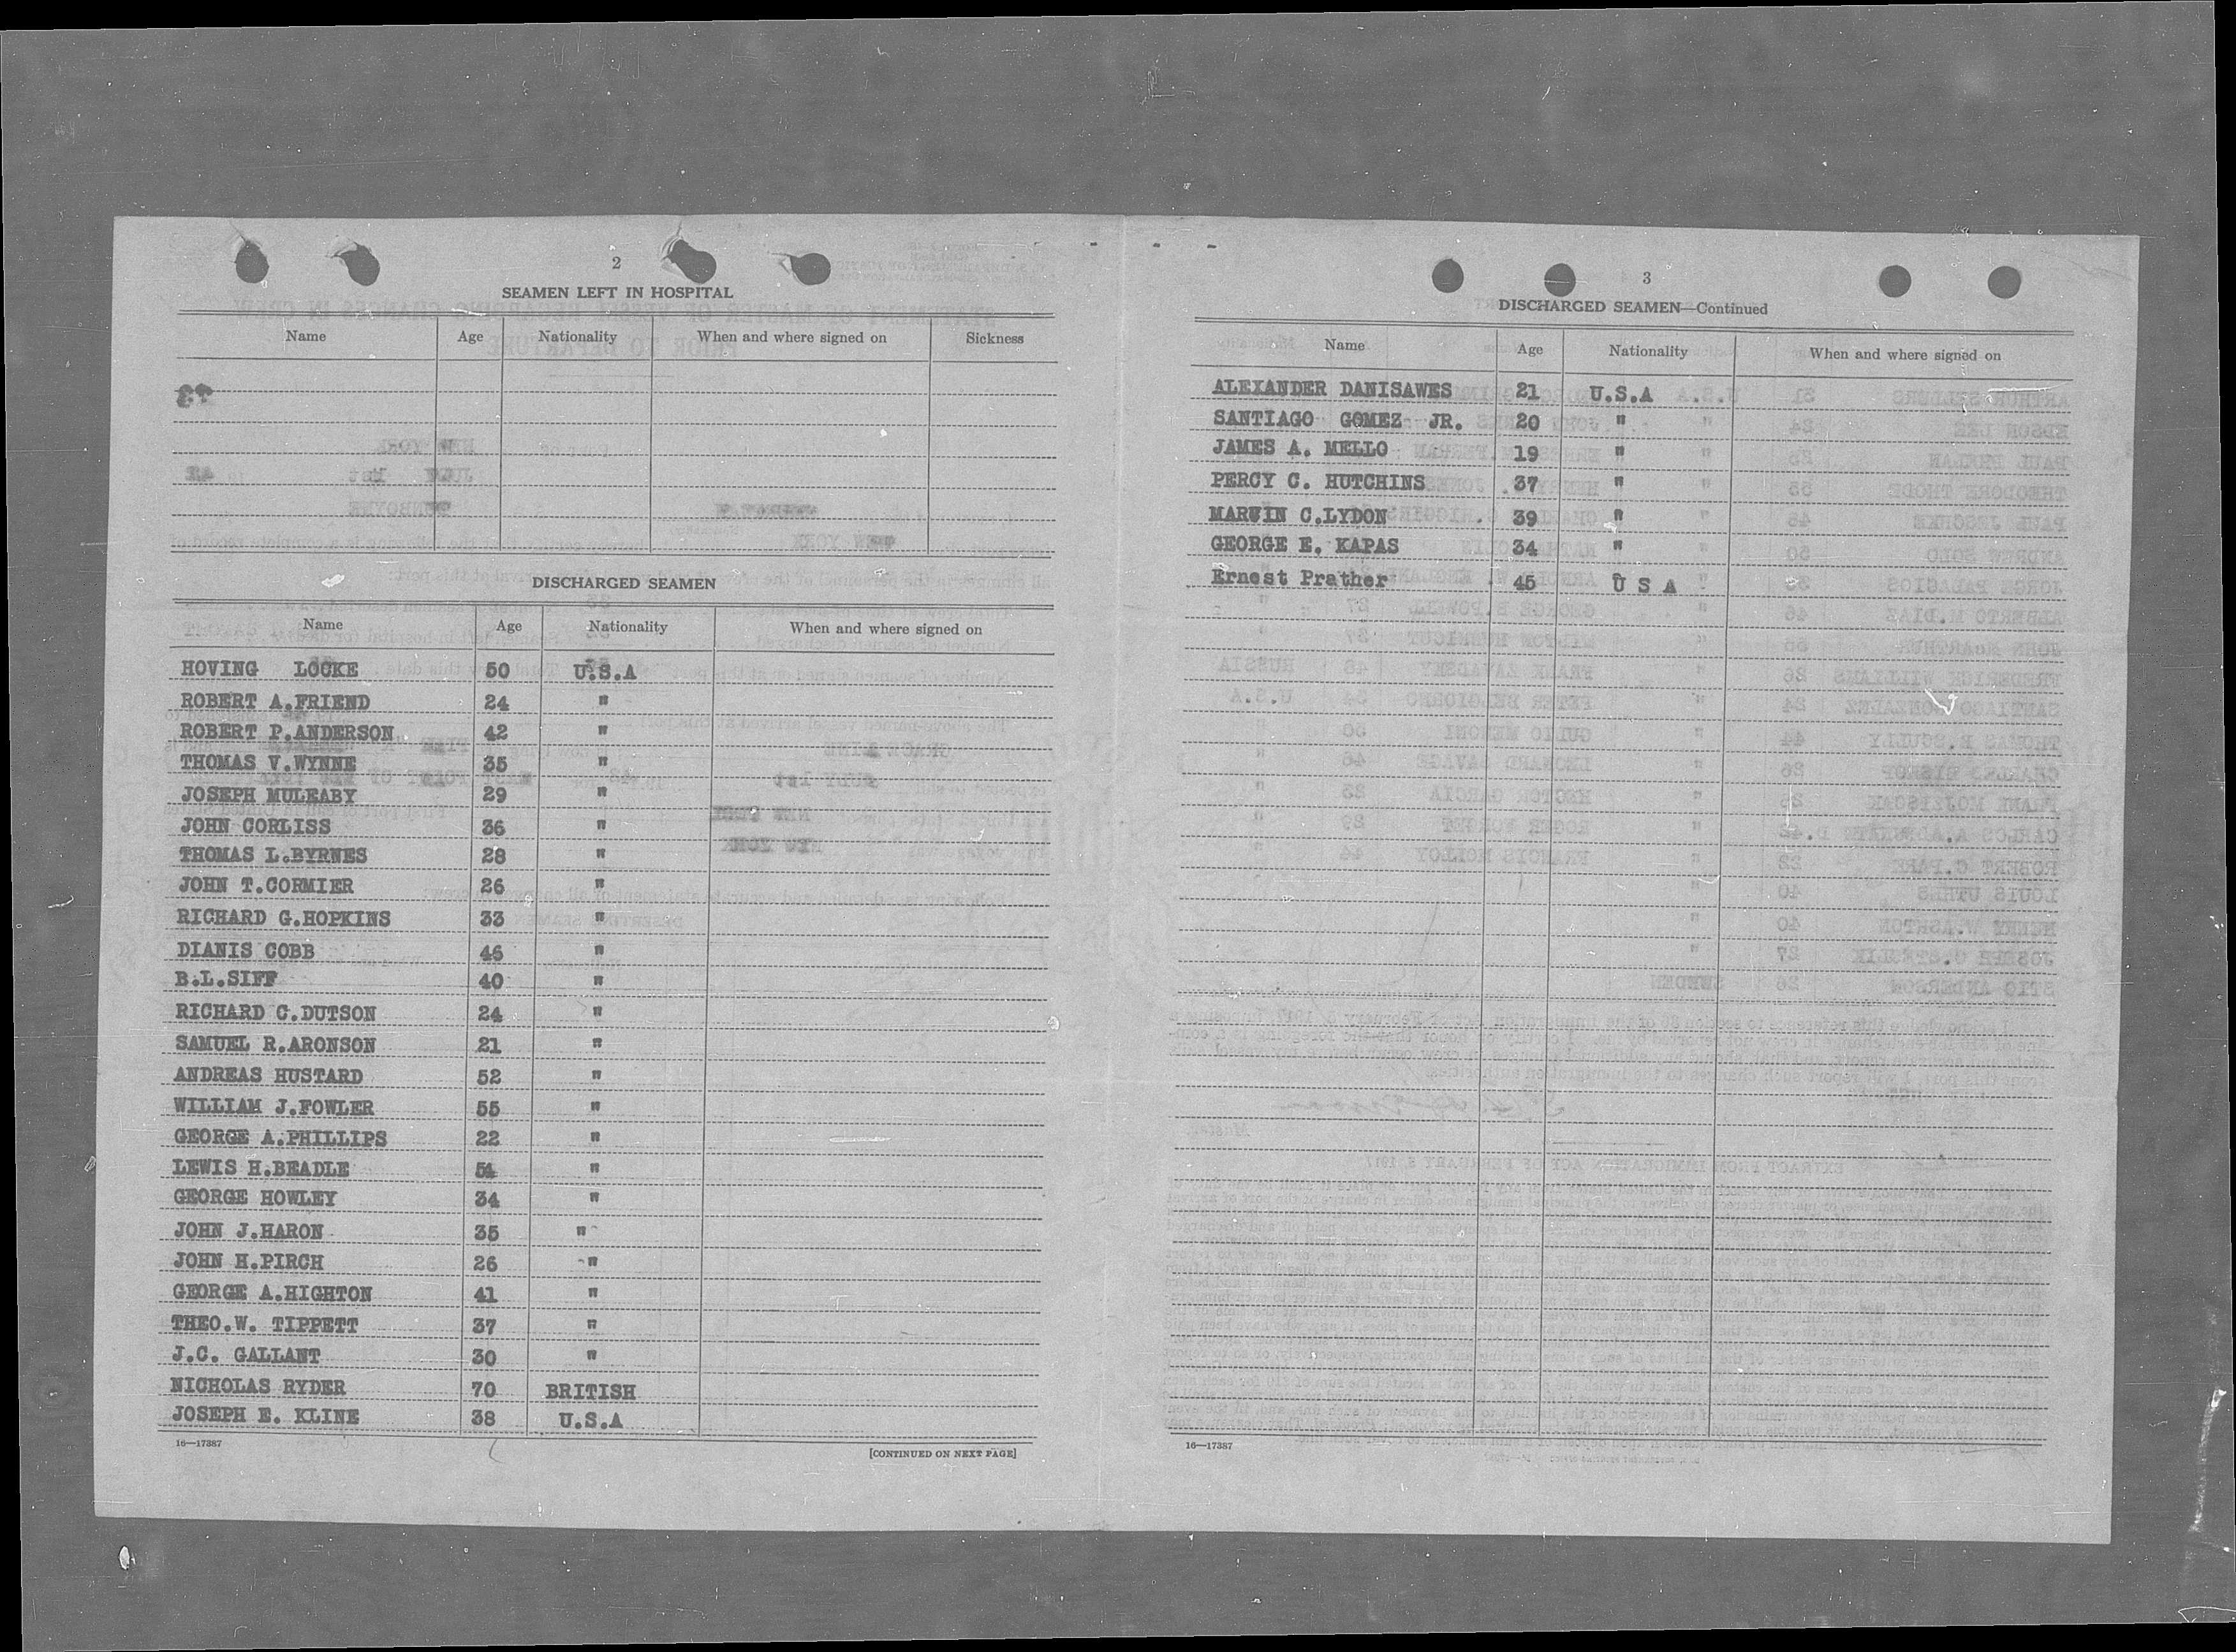 2
SEAMEN LEFT IN HOSPITAL
Name Age Nationality When and where signed on Sickness
DISCHARGED SEAMEN
Name Age Nationality When and where signed on
HOVING LOCKE 50 U.S.A
ROBERT A.FRIEND 24 "
ROBERT P.ANDERSON 42 "
THOMAS V.WYNNE 35 "
JOSEPH MULEABY 29 "
JOHN CORLISS 36 "
THOMAS L.BYRNES 28 "
JOHN T.CORMIER 26 "
RICHARD G.HOPKINS 33 "
DIANIS COBB 46 "
B.L.SIFF 40 "
RICHARD C.DUTSON 24 "
SAMUEL R.ARONSON 21 "
ANDREAS HUSTARD 52 "
WILLIAM J.FOWLER 55 "
GEORGE A.PHILLIPS 22 "
LEWIS H.BEADLE 54 "
GEORGE HOWLEY 34 "
JOHN J.HARON 35 "
JOHN H.PIRCH 26 "
GEORGE A.HIGHTON 41 "
THEO.W. TIPPETT 37 "
J.C. GALLANT 30 "
NICHOLAS RYDER 70 BRITISH
JOSEPH E. KLINE 38 U.S.A
16—17387
[CONTINUED ON NEXT PAGE]
3
DISCHARGED SEAMEN—Continued
Name Age Nationality When and where signed on
ALEXANDER DANISAWES 21 U.S.A
SANTIAGO GOMEZ JR. 20 "
JAMES A. MELLO 19 "
PERCY C. HUTCHINS 37 "
MARVIN C.LYDON 39 "
GEORGE E. KAPAS 34 "
Ernest Prather 45 U S A
16—17387